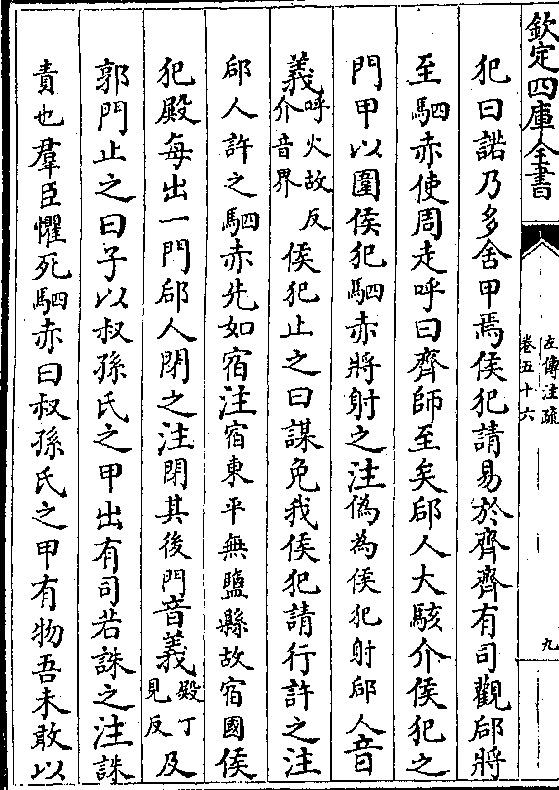 欽定四庫全書
左傳注疏
卷五十六
九
犯曰諾乃多舍甲焉侯犯請易於齊齊有司觀郈將
至駟赤使周走呼曰齊師至矣郈人大駭介侯犯之
門甲以圍侯犯駟赤將射之注偽為侯犯射郈人音
義呼火故反介音界侯犯止之曰謀免我侯犯請行許之注
郈人許之駟赤先如宿注宿東平無鹽縣故宿國侯
犯殿每出一門郈人閉之注閉其後門音義殿丁見反及
郭門止之曰子以叔孫氏之甲出有司若誅之注誅
責也羣臣懼死駟赤曰叔孫氏之甲有物吾未敢以